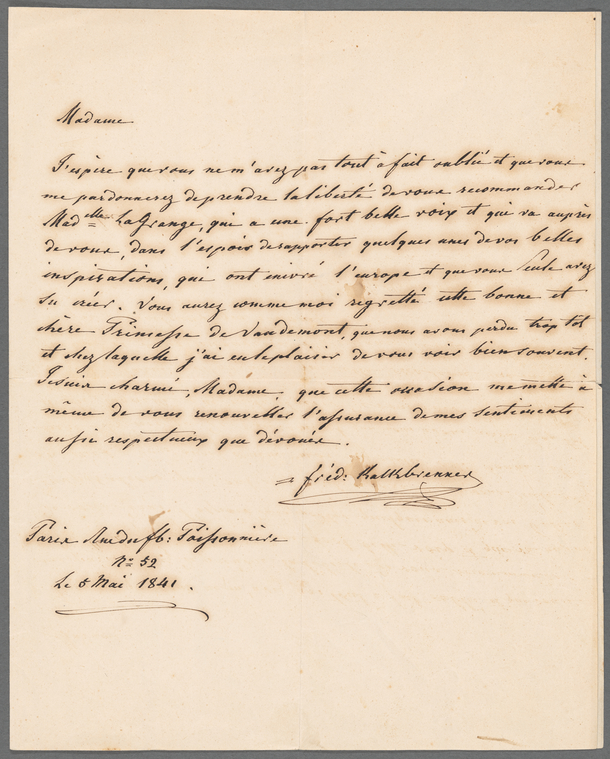 Madame
J'espère que vous ne m'avez pas tout à fait oublié et que vous
me pardonnerez de prendre la liberté de vous recommander
Mad^elle LaGrange, qui a une fort belle voix et qui va auprès
de vous, dans l'espoir de rapporter quelques unes de vos belles
inspirations, qui ont enivré l'europe et que vous seule avez
su créer. Vous aurez comme moi regretté cette bonne et
chère Princesse de Vaudemont, que nous avons perdu trop tot
et chez laquelle j'ai eu le plaisir de vous voir bien souvent.
Je suis charmé, Madame, que cette occasion me mette à
même de vous renouveller l'assurance de mes sentiments
aussi respectueux que dévoués.
= fréd: Kalkbrenner
Paris Rue du fb: Poissonnière
N° 52
Le 5 Mai 1841.